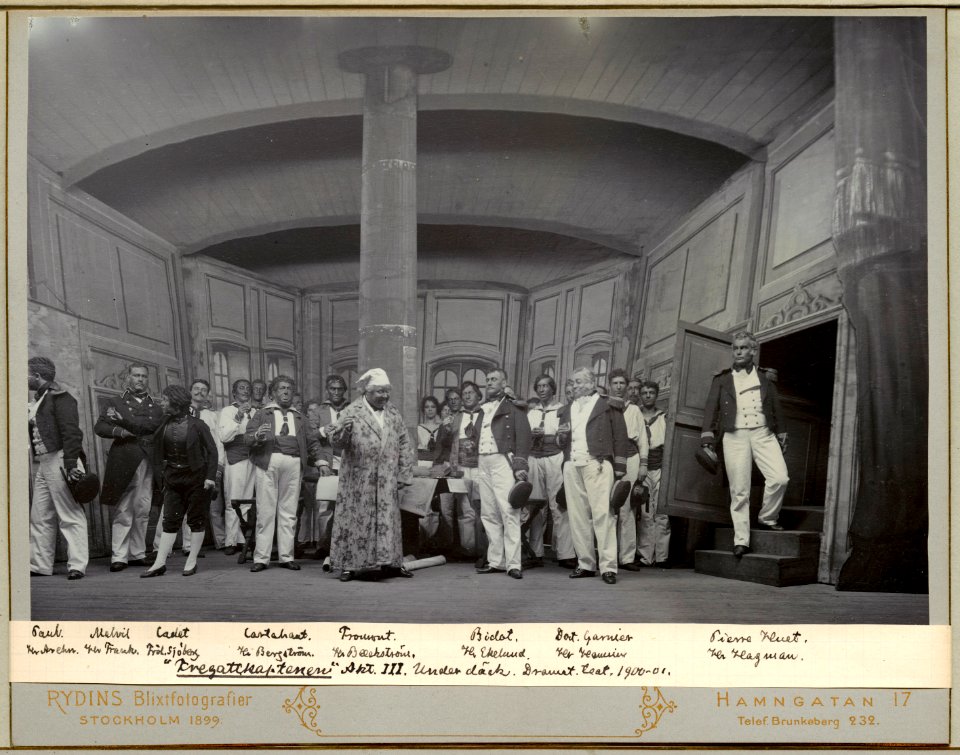 Paul. Malvil Cadet Cartahaat. Fromont. Bidot. Dort. Garnier Pierre Huet.
Hr Hr Frank. Frök. Sjöberg Hr Bergström. Hr Bäckström. Hr Ekelund. Hr Hamrin Hr Hagman.
"Fregattkaptenen" Akt. III. Under däck. Dramat. teat. 1900-01.
RYDINS Blixtfotografier
STOCKHOLM 1899.
HAMNGATAN 17
Telef. Brunkeberg 232.